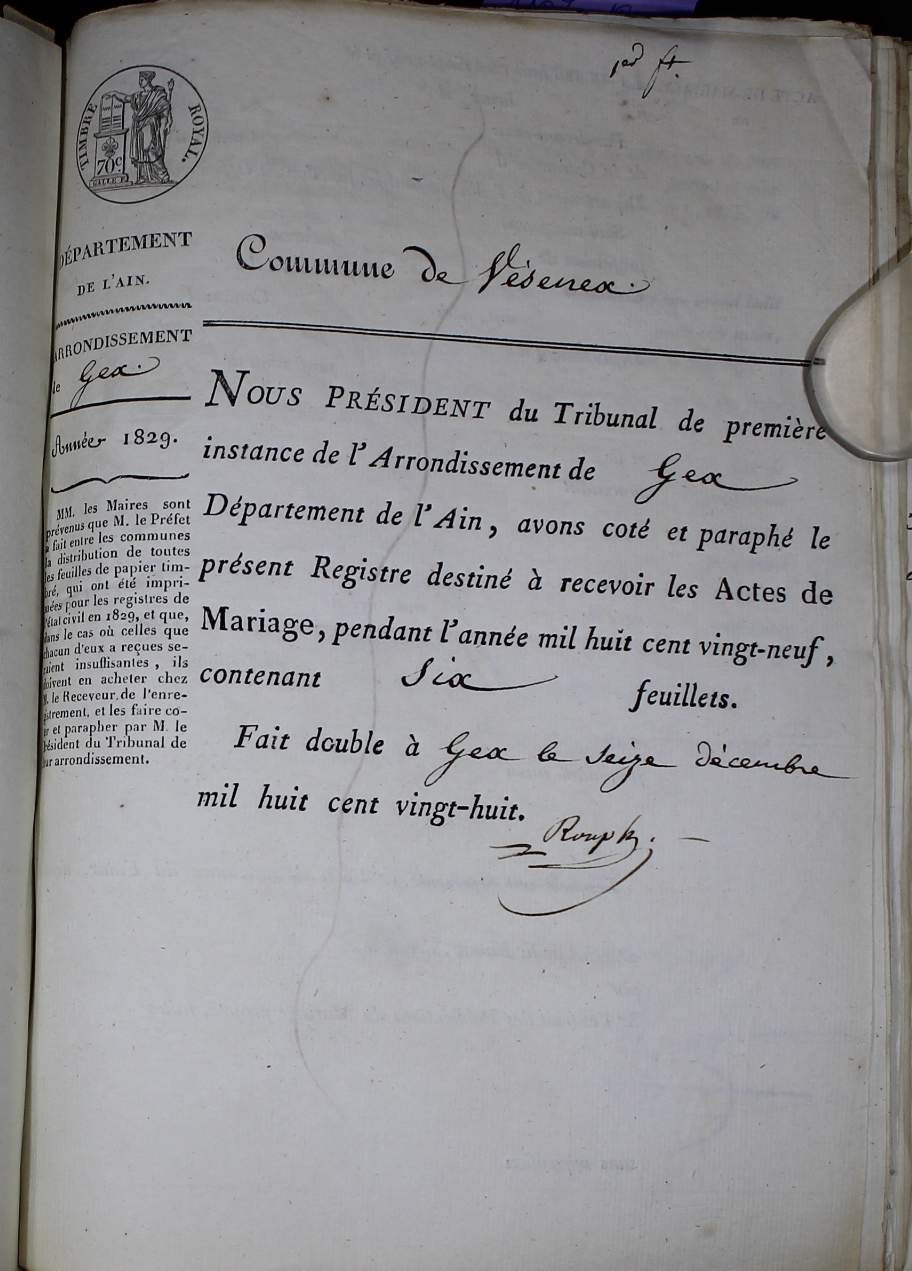 1er ft.
TIMBRE ROYAL.
70c
DÉPARTEMENT
DE L'AIN.
ARRONDISSEMENT
de Gex.
Année 1829.
MM. les Maires sont
prévenus que M. le Préfet
a fait entre les communes
la distribution de toutes
les feuilles de papier tim-
bré, qui ont été impri-
mées pour les registres de
l'état civil en 1829, et que,
dans le cas où celles que
chacun d'eux a reçues se-
raient insuffisantes, ils
doivent en acheter chez
M. le Receveur de l'enre-
gistrement, et les faire co-
ter et parapher par M. le
Président du Tribunal de
leur arrondissement.
Commune De Vésenex.
NOUS PRÉSIDENT du Tribunal de première
instance de l'Arrondissement de Gex
Département de l'Ain, avons coté et paraphé le
présent Registre destiné à recevoir les Actes de
Mariage, pendant l'année mil huit cent vingt-neuf,
contenant Six feuillets.
Fait double à Gex le seize décembre
mil huit cent vingt-huit.